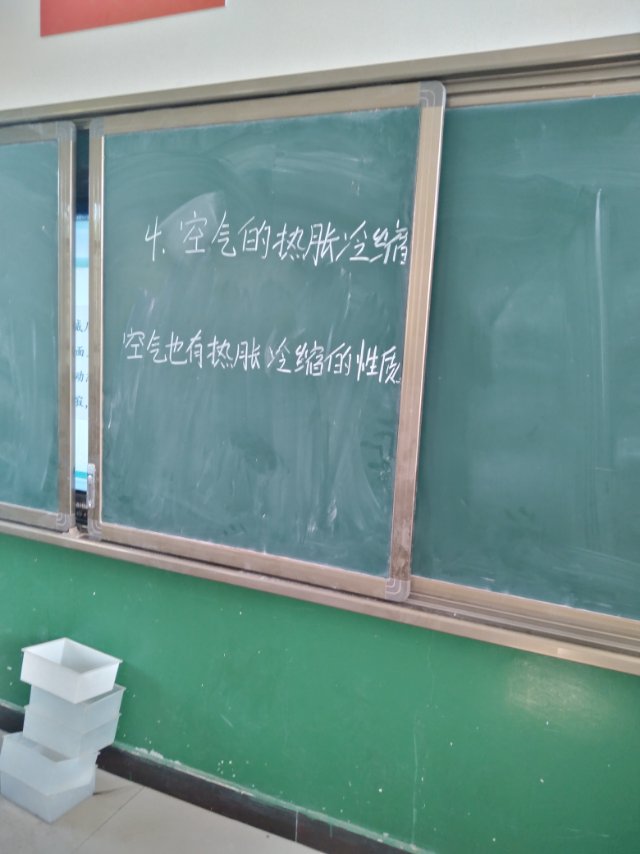 4.空气的热胀冷缩
空气也有热胀冷缩的性质。
面
动